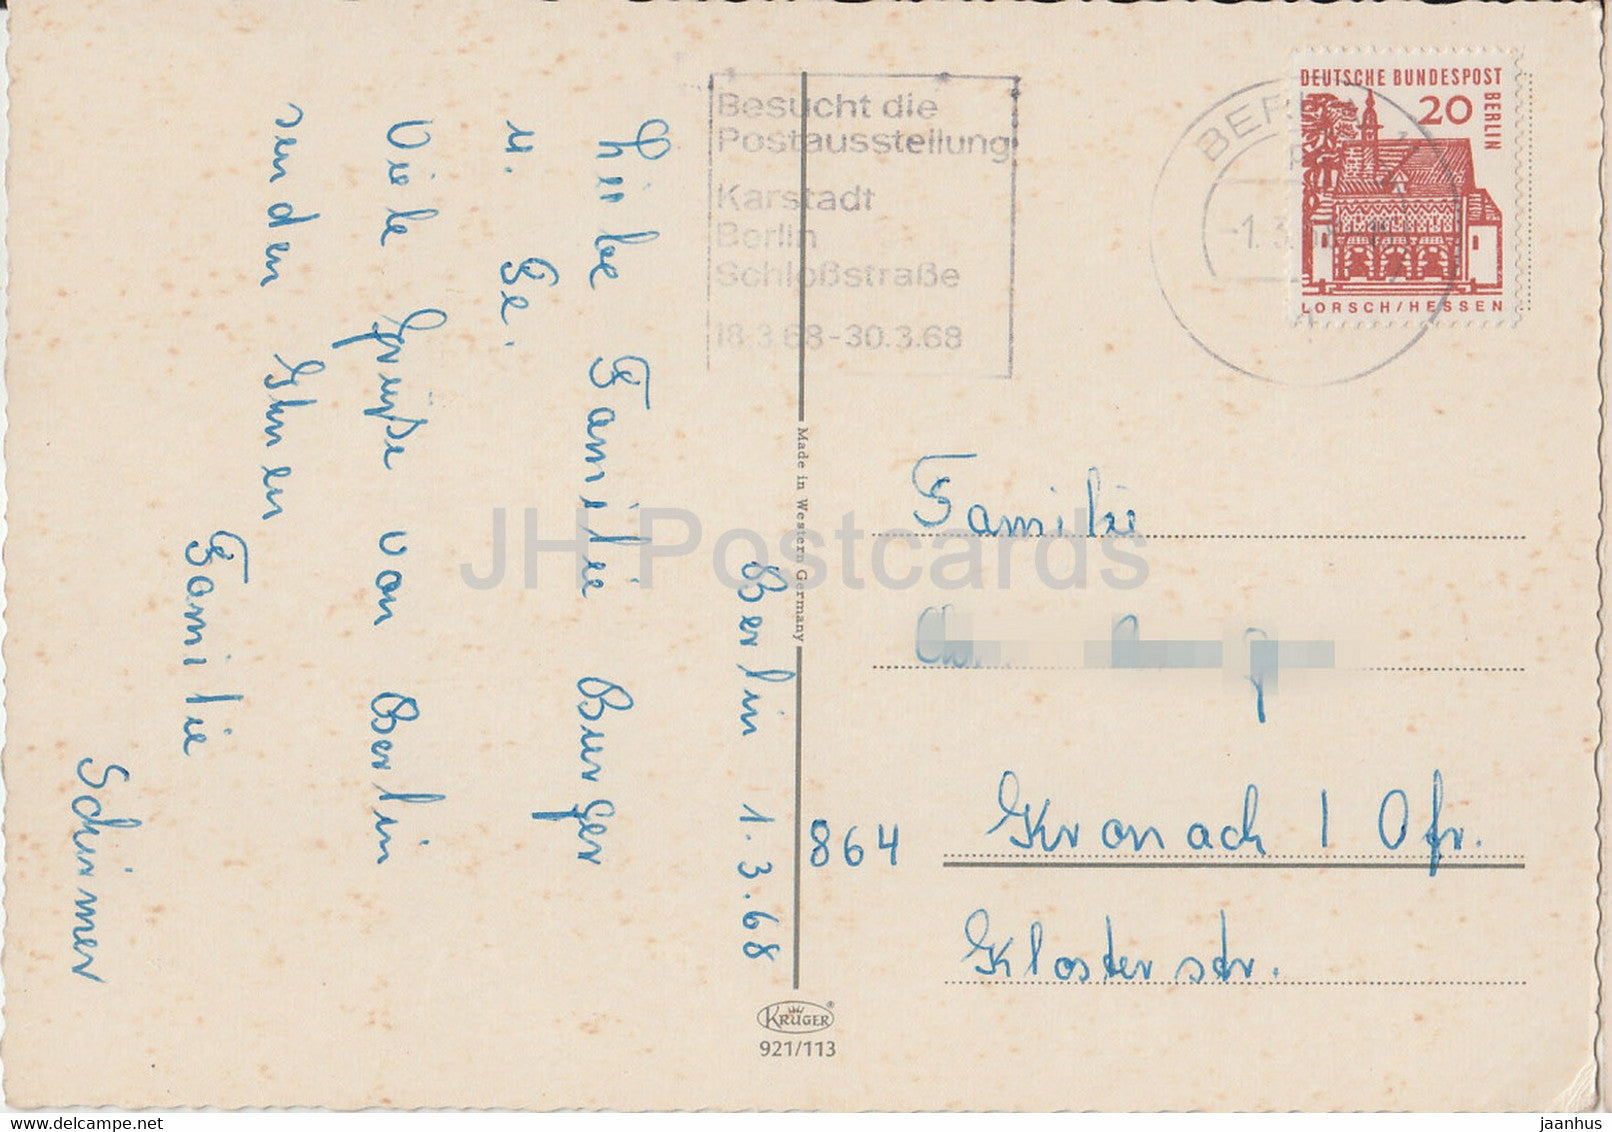 Besucht die
Postausstellung
Karstadt
Berlin
Schloßstraße
18.3.68-30.3.68
DEUTSCHE BUNDESPOST
BERLIN
20
LORSCH/HESSEN
BERLIN
-1.3.
Berlin 1.3.68
Liebe Familie Burger
u. Ge.
Viele Grüße von Berlin
senden Ihnen
Familie
Schirmer
Made in Western Germany
Familie
864 Kronach 1 Ofr.
Klosterstr.
KRÜGER
921/113
JH Postcards
www.delcampe.net
jaanhus